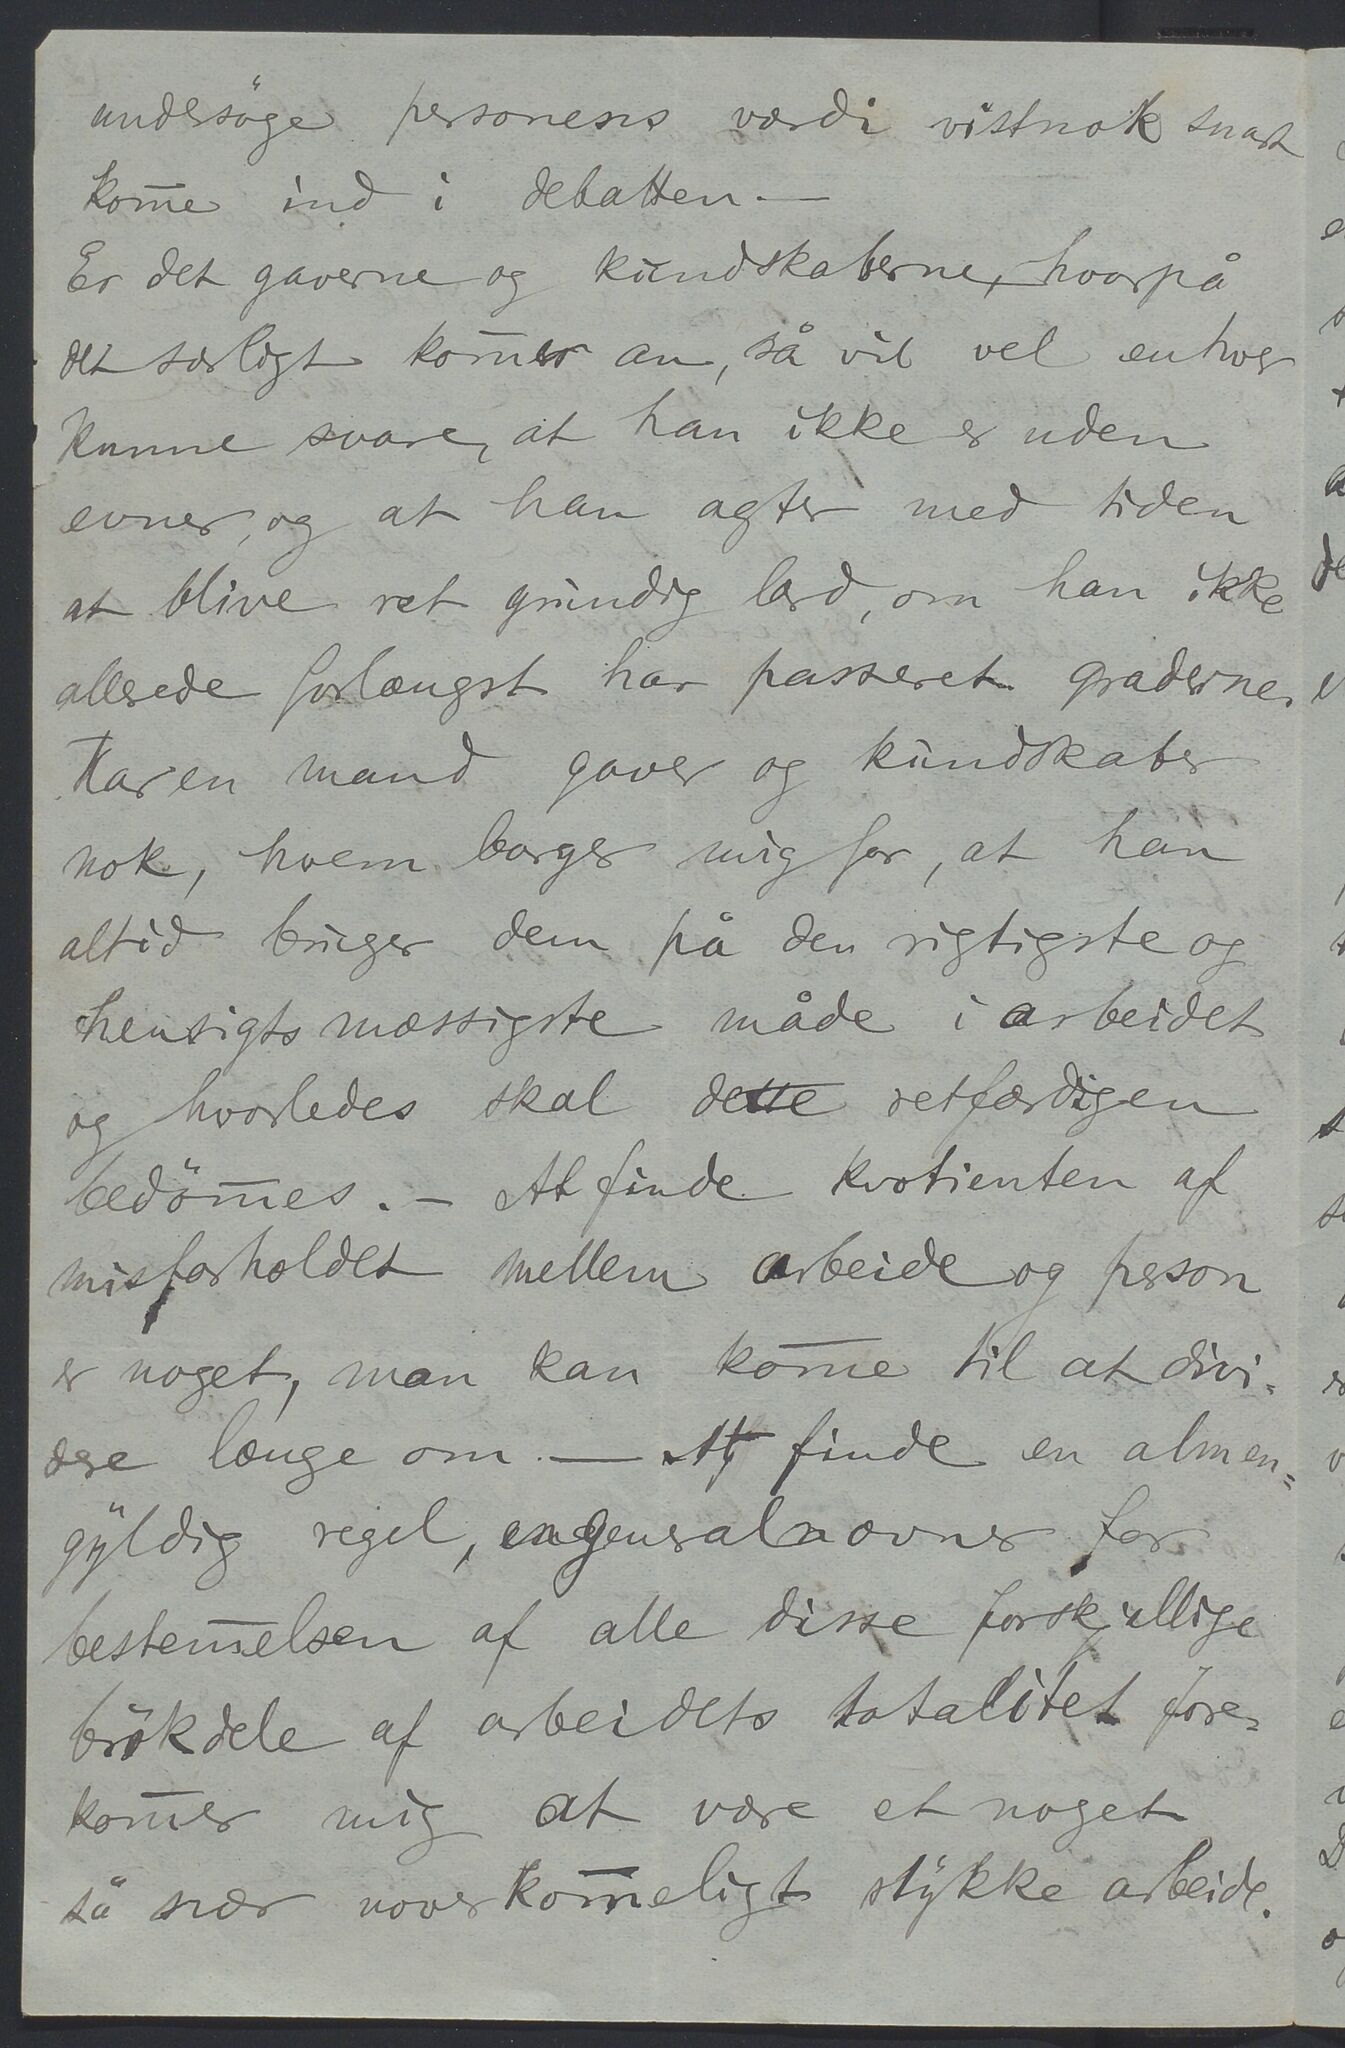 undersöge personens værdi vistnok snart
kom̅e ind i debatten. —
Er det gaverne og kundskaberne, hvorpå
det særligt kom̅er an, så vil vel enhver
kunne svare, at han ikke er uden
evner, og at han agter med tiden
at blive ret grundig lærd, om han ikke
allerede forlængst har passeret graderne.
Har en mand gaver og kundskaber
nok, hvem borger mig for, at han
altid bruger dem på den rigtigste og
hensigtsmæssigste måde i arbeidet
og hvorledes skal dette retfærdigen
bedöm̅es. — At finde kvotienten af
misforholdet mellem arbeide og person
er noget, man kan kom̅e til at divi-
dere længe om. — At finde en almen=
gyldig regel, en generalnævner for
bestem̅elsen af alle disse forskjellige
brökdele af arbeidets totalitet fore-
kom̅er mig at være et noget
så nær uoverkom̅eligt stykke arbeide.